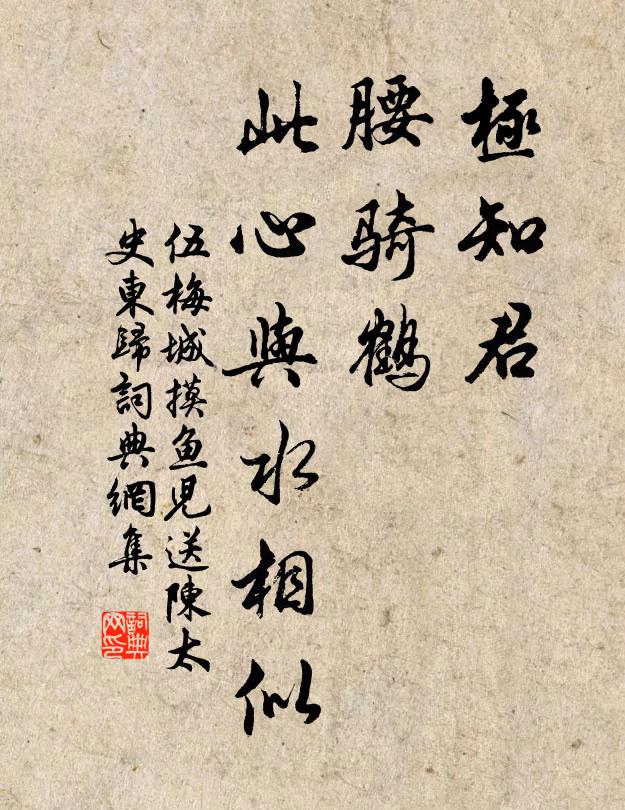 極知君
腰骑鶴
此心與水相似
伍梅城摸鱼児送陳太
史東歸詞典網集
詞典
网印